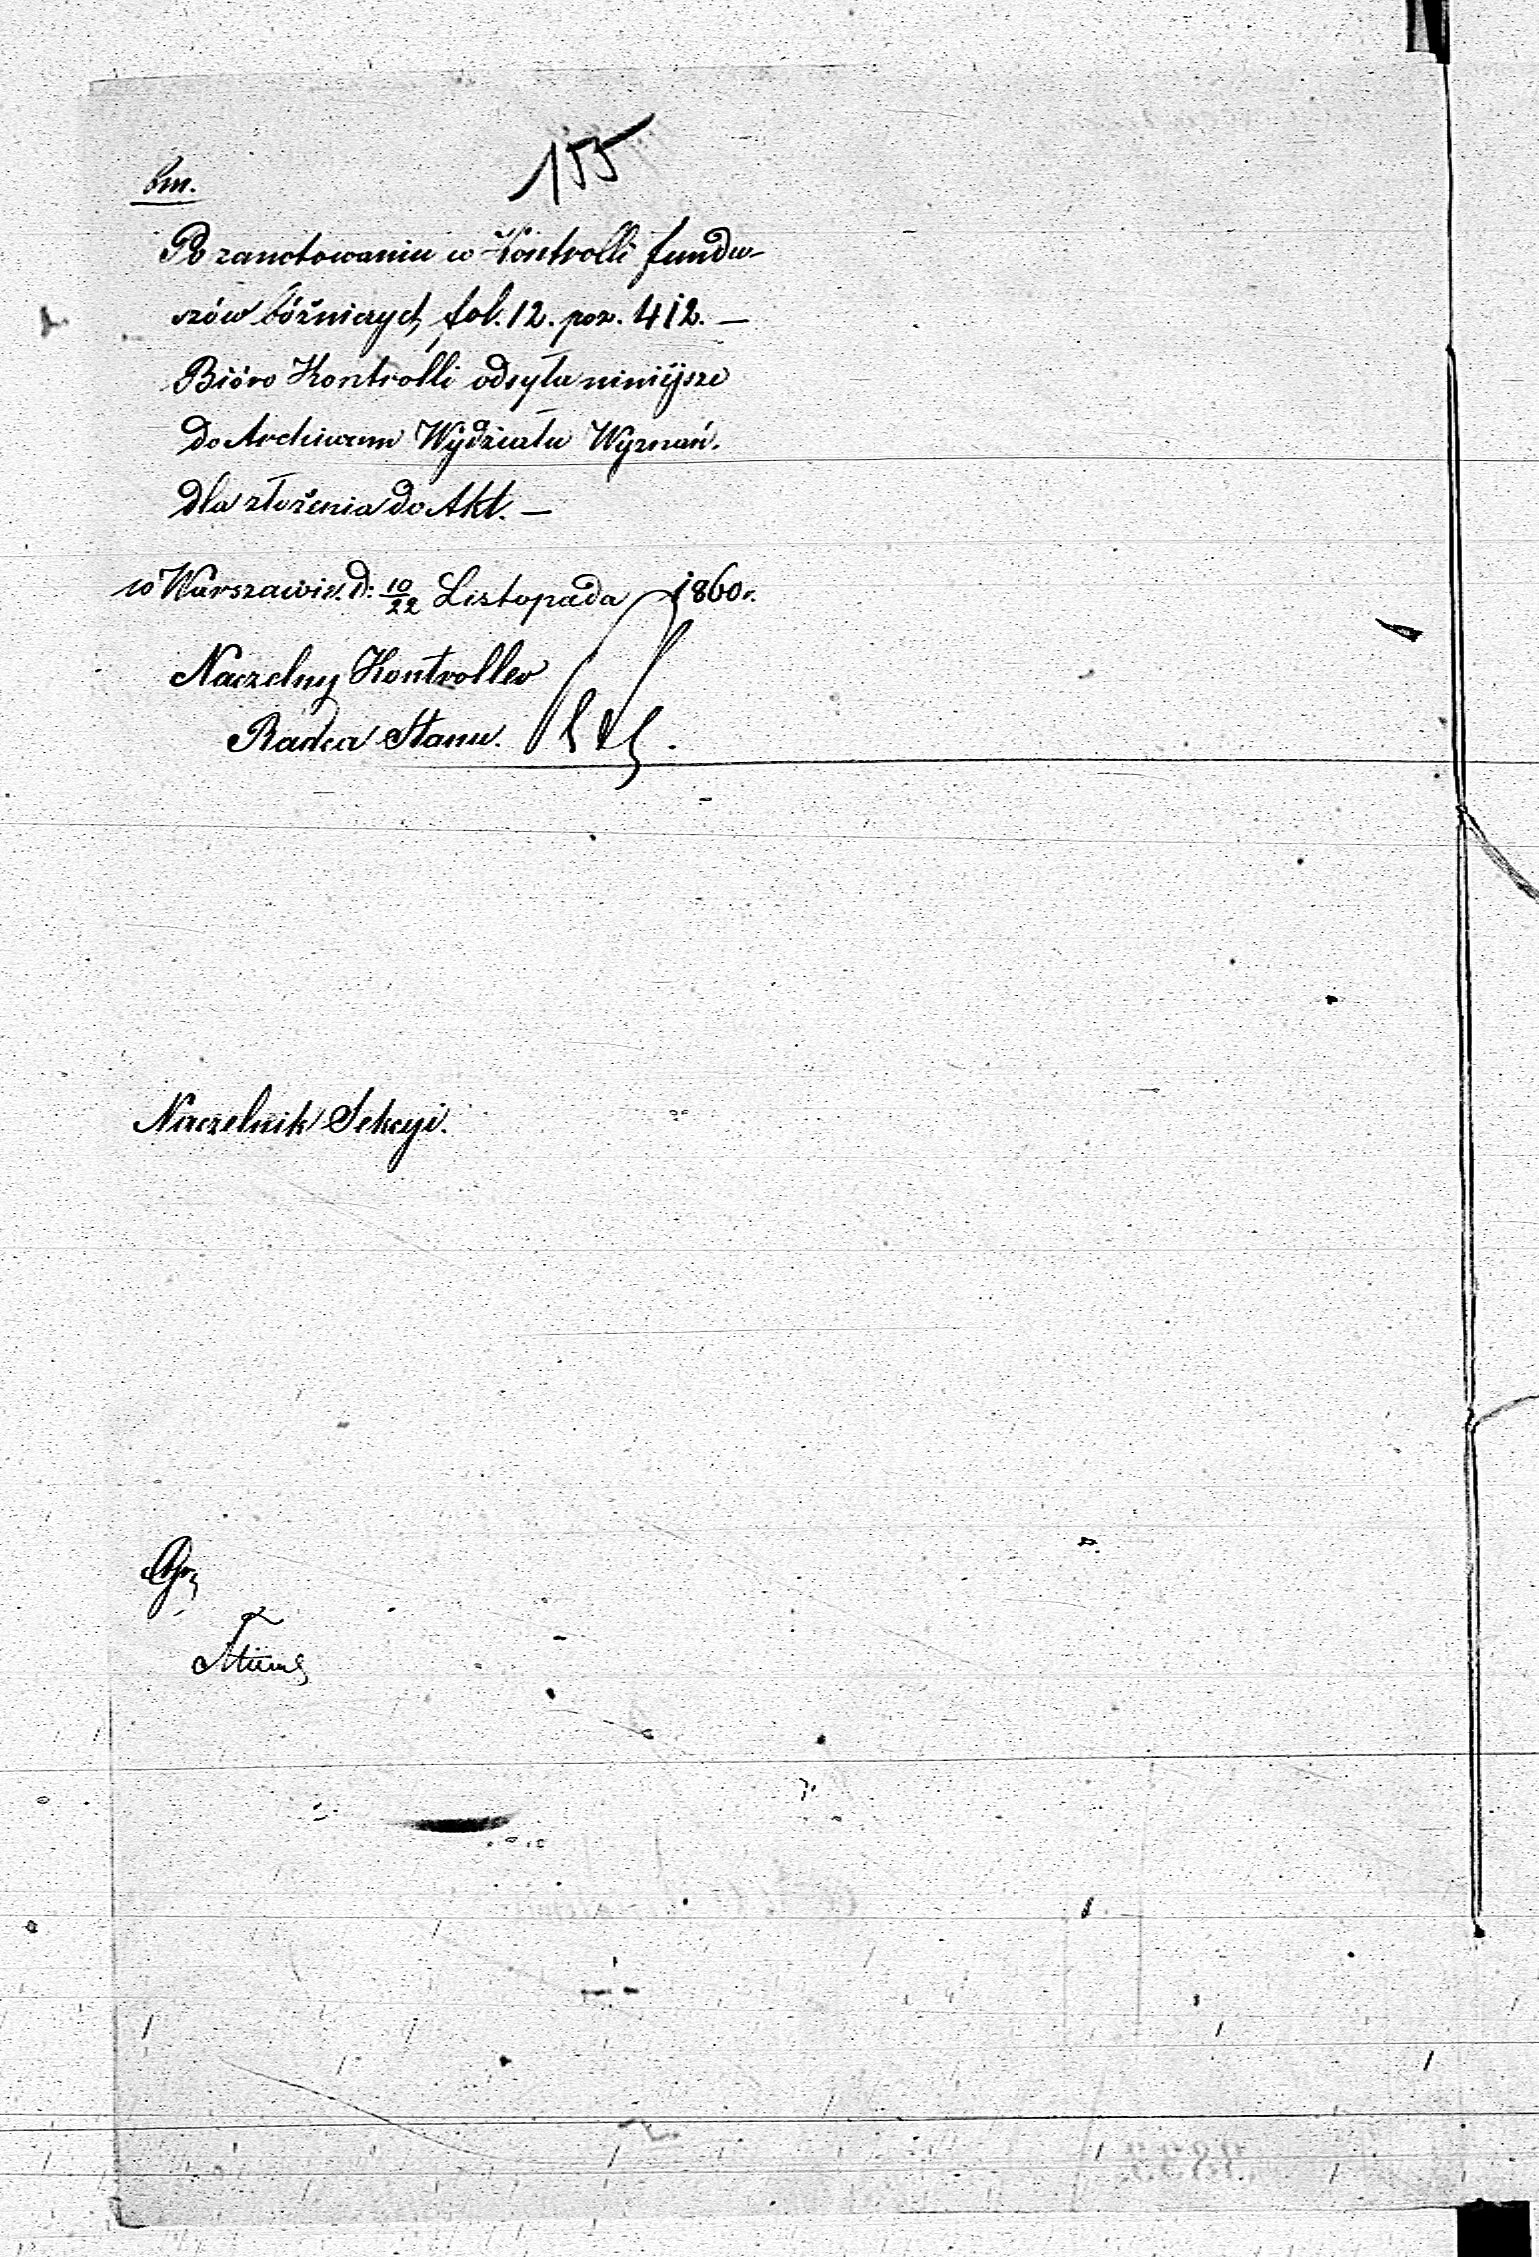 155
bm.
Po zanotowaniu w Kontrolli fundu-
szów bóżniczych fol. 12. poz. 412. —
Bióro Kontrolli odsyła niniejsze
do Archiwum Wydziału Wyznań.
dla złożenia do Akt. —
w Warszawie d: 10/22 Listopada 1860 r.
Naczelny Kontroller
Radca Stanu.
Naczelnik Sekcyi.